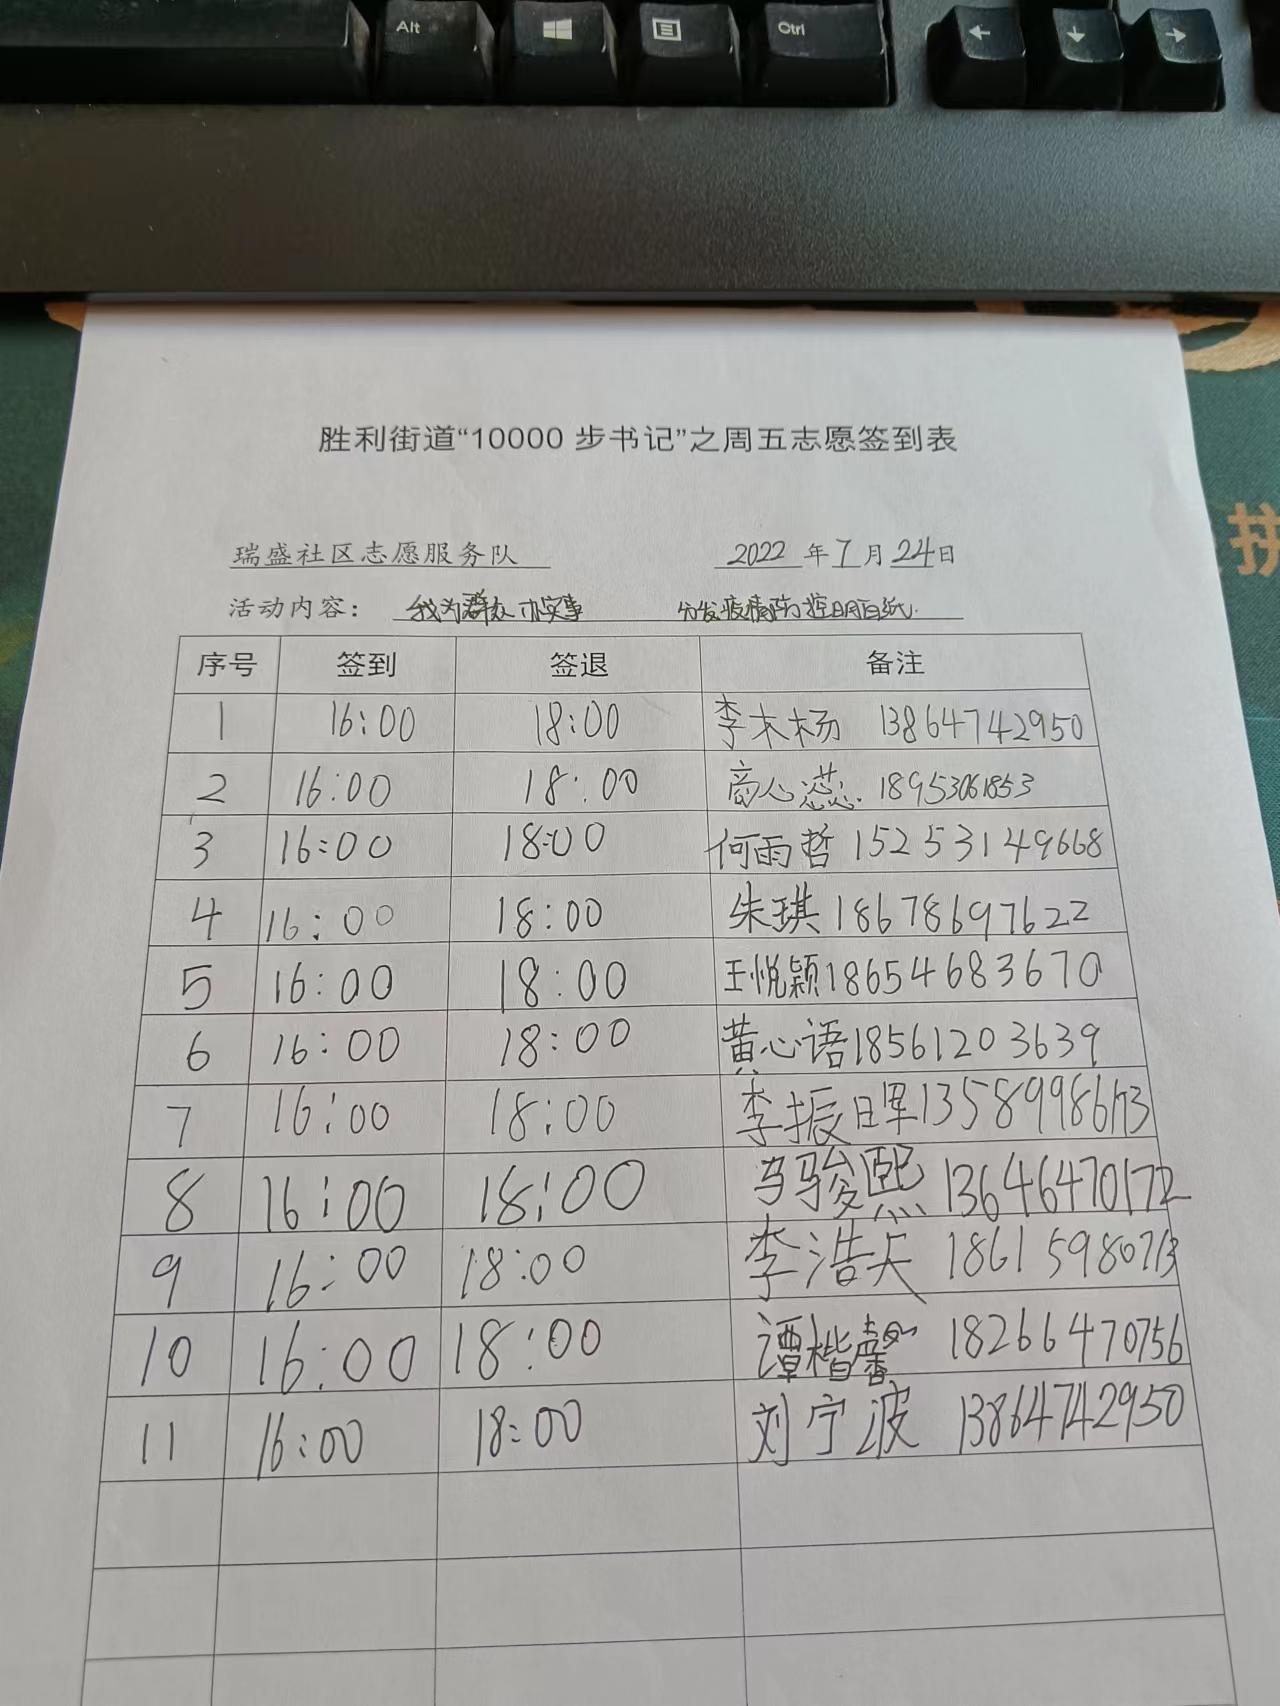 Alt
Ctrl
胜利街道“10000 步书记”之周五志愿签到表
瑞盛社区志愿服务队 2022 年 7 月 24 日
活动内容： 我为群众办实事 分发疫情防控明白纸.
序号 签到 签退 备注
1 16:00 18:00 李木杨 13864742950
2 16:00 18:00 商心蕊. 18953061853
3 16:00 18:00 何雨哲 15253149668
4 16:00 18:00 朱琪 18678697622
5 16:00 18:00 王悦颖 18654683670
6 16:00 18:00 黄心语 18561203639
7 16:00 18:00 李振晖 13589986113
8 16:00 18:00 马骏熙 13646470172
9 16:00 18:00 李浩天 18615980713
10 16:00 18:00 谭楷馨 18266470756
11 16:00 18:00 刘宁波 13864742950